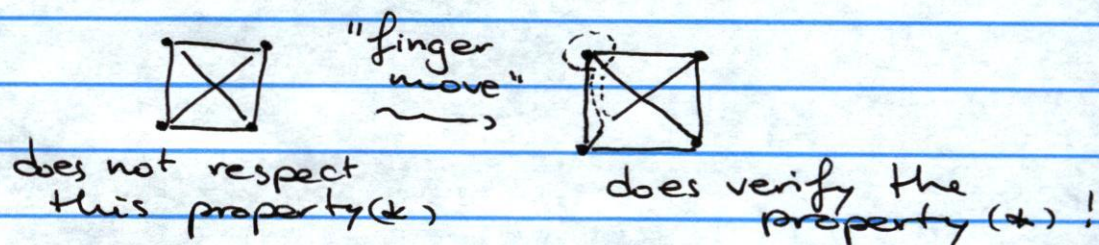 "finger
move"
does not respect
this property (*)
does verify the
property (*) !